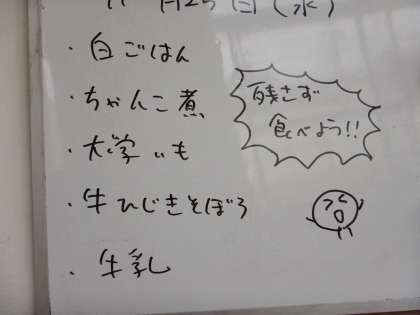 11月25日(水)
・白ごはん
・ちゃんこ煮
・大学いも
・牛ひじきそぼろ
・牛乳
残さず
食べよう!!